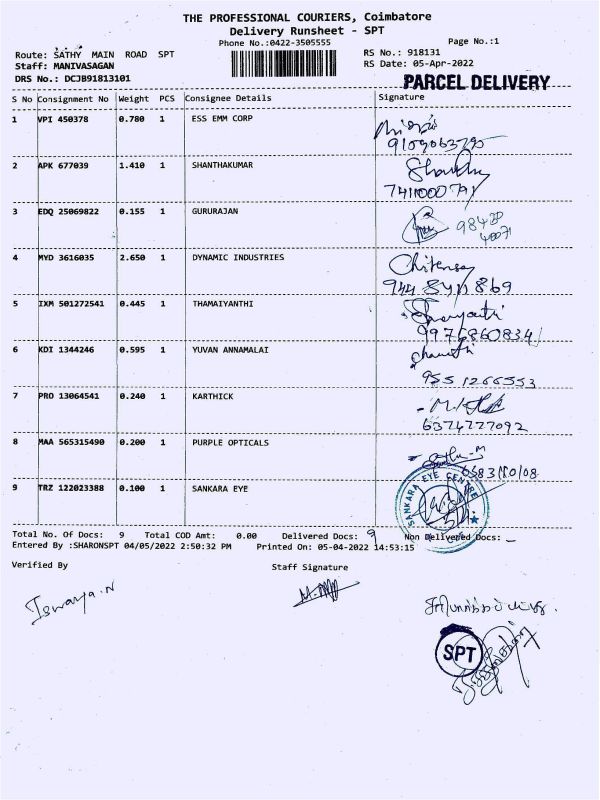 THE PROFESSIONAL COURIERS, Coimbatore
Delivery Runsheet - SPT
Phone No.:0422-3505555 Page No.:1
Route: SATHY MAIN ROAD SPT RS No.: 918131
Staff: MANIVASAGAN RS Date: 05-Apr-2022
DRS No.: DCJB91813101 PARCEL DELIVERY
S No Consignment No Weight PCS Consignee Details Signature
1 VPI 450378 0.780 1 ESS EMM CORP
2 APK 677039 1.410 1 SHANTHAKUMAR
3 EDQ 25069822 0.155 1 GURURAJAN
4 MYD 3616035 2.650 1 DYNAMIC INDUSTRIES
5 IXM 501272541 0.445 1 THAMAIYANTHI
6 KDI 1344246 0.595 1 YUVAN ANNAMALAI
9551266553
7 PRO 13064541 0.240 1 KARTHICK
6374777092
8 MAA 565315490 0.200 1 PURPLE OPTICALS
9 TRZ 122023388 0.100 1 SANKARA EYE
SANKARA EYE CENTRE
Total No. Of Docs: 9 Total COD Amt: 0.00 Delivered Docs: 9 Non Delivered Docs: -
Entered By :SHARONSPT 04/05/2022 2:50:32 PM Printed On: 05-04-2022 14:53:15
Verified By Staff Signature
Iswarya.N
SPT